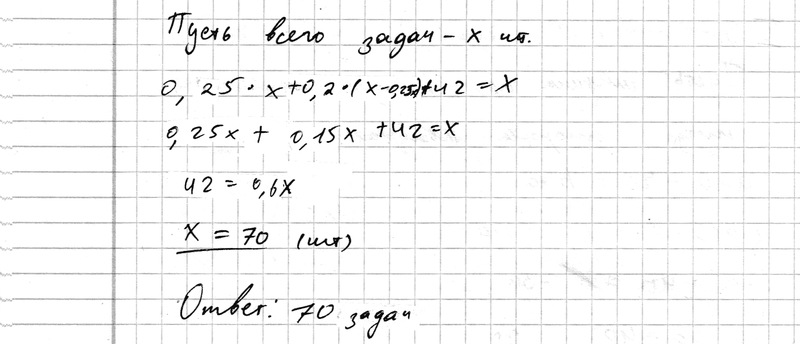 Пусть всего задач - x шт.
0,25·x+0,2·(x-0,25x)+42=x
0,25x + 0,15x +42=x
42 = 0,6x
x = 70 (шт)
Ответ: 70 задач